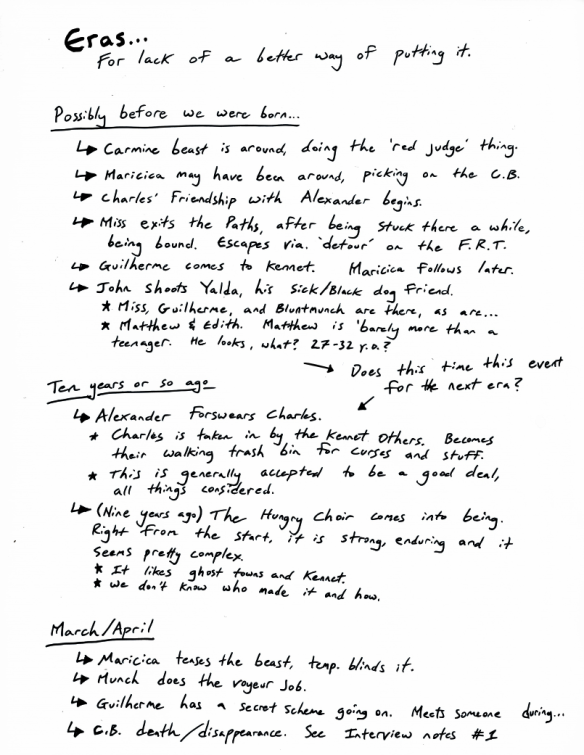 Eras...
For lack of a better way of putting it.
Possibly before we were born...
↳ Carmine beast is around, doing the 'red judge' thing.
↳ Maricica may have been around, picking on the C.B.
↳ Charles' Friendship with Alexander begins.
↳ Miss exits the Paths, after being stuck there a while,
being bound. Escapes via. 'detour' on the F.R.T.
↳ Guilherme comes to Kennet. Maricica follows later.
↳ John shoots Yalda, his Sick/Black dog friend.
★ Miss, Guilherme, and Bluntmunch are there, as are...
★ Matthew & Edith. Matthew is 'barely more than a
teenager. He looks, what? 27-32 y.o.?
→ Does this time this event
for the next era?
Ten years or so ago
↳ Alexander Forswears Charles.
★ Charles is taken in by the Kennet Others. Becomes
their walking trash bin for curses and stuff.
★ This is generally accepted to be a good deal,
all things considered.
↳ (Nine years ago) The Hungry Choir comes into being.
Right from the start, it is strong, enduring and it
seems pretty complex.
★ It likes ghost towns and Kennet.
★ we don't know who made it and how.
March/April
↳ Maricica teases the beast, temp. blinds it.
↳ Munch does the voyeur Job.
↳ Guilherme has a secret scheme going on. Meets someone during...
↳ C.B. death/disappearance. See Interview notes #1